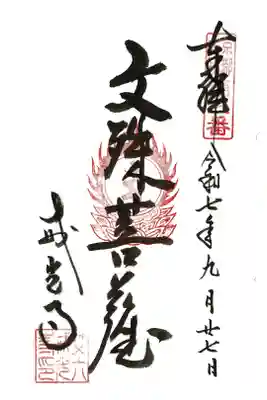 奉拝
令和七年九月廿七日
文殊菩薩
妙光寺